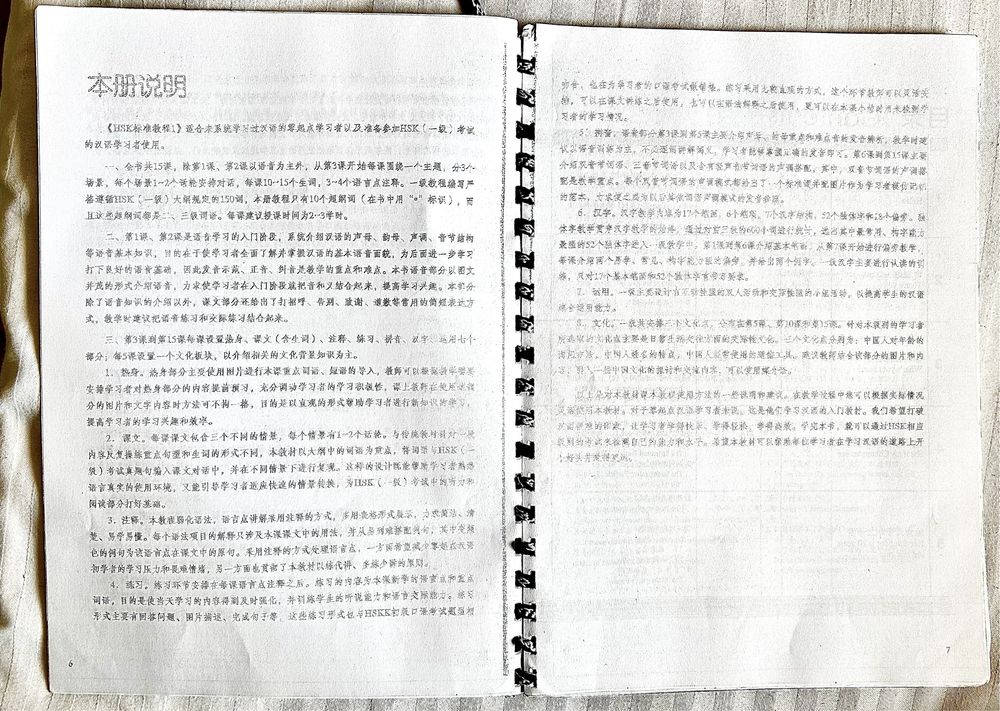 本册说明
《HSK标准教程1》适合未系统学习过汉语的零起点学习者以及准备参加HSK（一级）考试
的汉语学习者使用。
一、全书共15课，除第1课、第2课以语音为主外，从第3课开始每课围绕一个主题，分3个
场景，每个场景1~2个话轮安排对话，每课10~15个生词，3~4个语言点注释。一级教程编写严
格遵循HSK（一级）大纲规定的150词，本册教程只有10个超纲词（在书中用“*”标识），而
且这些超纲词都是二、三级词语。每课建议授课时间为2~3学时。
二、第1课、第2课是语音学习的入门阶段，系统介绍汉语的声母、韵母、声调、音节结构
等语音基本知识，目的在于使学习者全面了解并掌握汉语的基本语音面貌，为后面进一步学习
打下良好的语音基础，因此发音示范、正音、纠音是教学的重点和难点。本书语音部分以图文
并茂的形式介绍语音，力求使学习者在入门阶段就把音和义结合起来，提高学习兴趣。本部分
除了语音知识的介绍以外，课文部分还给出了打招呼、告别、致谢、道歉等常用的简短表达方
式，教学时建议把语音练习和交际练习结合起来。
三、第3课到第15课每课设置热身、课文（含生词）、注释、练习、拼音、汉字、运用七个
部分；每5课设置一个文化板块，以介绍相关的文化背景知识为主。
1．热身。热身部分主要使用图片进行本课重点词语、短语的导入，教师可以根据教学需要
安排学习者对热身部分的内容提前预习，充分调动学习者的学习积极性，课上教师在使用这部
分的图片和文字内容时方法可不拘一格，目的是以直观的形式帮助学习者进行新知识的学习，
提高学习者的学习兴趣和效率。
2．课文。每课课文包含三个不同的情景，每个情景有1~2个话轮。与传统教材针对一段
内容反复操练重点句型和生词的形式不同，本教材以大纲中的词语为重点，将词语与HSK（一
级）考试真题句输入课文对话中，并在不同情景下进行复现。这样的设计既能帮助学习者熟悉
语言真实的使用环境，又能引导学习者适应快速的情景转换，为HSK（一级）考试中的听力和
阅读部分打好基础。
3．注释。本教程弱化语法，语言点讲解采用注释的方式，多用表格形式展示，力求简洁、清
楚、易学易懂。每个语法项目的解释只涉及本课课文中的用法，并从易到难搭配例句，其中变颜
色的例句为该语言点在课文中的原句。采用注释的方式处理语言点，一方面希望减少零起点汉语
初学者的学习压力和畏难情绪，另一方面也贯彻了本教材以练代讲、多练少讲的原则。
4．练习。练习环节安排在每课语言点注释之后。练习的内容为本课新学的语言点和重点
词语，目的是使当天学习的内容得到及时强化，并训练学生的听说能力和语言交际能力。练习
形式主要有回答问题、图片描述、完成句子等，这些练习形式也与HSKK初级口语考试题型相
6
吻合，也在为学习者的口语考试做储备。练习采用比较直观的方式，这个环节教师可以灵活安
排，可以在课文讲练之后使用，也可以在语法解释之后使用，更可以在本课小结时用来检测学
习者的学习情况。
5．拼音。语音部分第3课到第5课主要介绍声母、韵母重点和难点音的发音辨析，教学时建
议以语音训练为主，不必逐词讲解词义，学习者能够掌握正确的发音即可。第6课到第15课主要
介绍双音节词语、三音节词语以及含有轻声音节词语的声调搭配，其中，双音节词语的声调搭
配是教学重点。每个双音节词语的声调模式都给出了一个标准词并配图片作为学习者模仿记忆
的范本，力求使之成为以后其他词语声调模式的发音参照。
6．汉字。汉字教学内容为17个笔画，6个笔顺，7个汉字结构，52个独体字和18个偏旁。独
体字教学贯穿汉字教学的始终，通过对前三级的600个词进行统计，选出其中最常用、构字能力
最强的52个独体字进入一级教学中。第1课到第6课介绍基本笔画，从第7课开始进行偏旁教学，
每课介绍两个易学、常见、构字能力强的偏旁，并给出两个例字。一级汉字主要进行认读的训
练，只对17个基本笔画和52个独体字有书写要求。
7．运用。一级主要设计有互动性强的双人活动和交际性强的小组活动，以提高学生的汉语
综合运用能力。
8．文化。一级共安排三个文化点，分布在第5课、第10课和第15课。针对本级别的学习者
所选取的文化点主要是日常生活交往方面的交际性文化。三个文化点分别为：中国人对年龄的
询问方法、中国人姓名的特点，中国人经常使用的通信工具。建议教师结合该部分的图片和内
容，引入一些中国文化的探讨和交流内容，可以使用媒介语。
以上是对本教材课本教程使用方法的一些说明和建议。在教学过程中您可以根据实际情况
灵活使用本教材。对于零起点汉语学习者来说，这是他们学习汉语的入门教材。我们希望打破
汉语很难的印象，让学习者学得快乐、学得轻松、学得高效。学完本书，就可以通过HSK相应
级别的考试来检测自己的能力和水平。希望本教材可以帮助每位学习者在学习汉语的道路上开
7